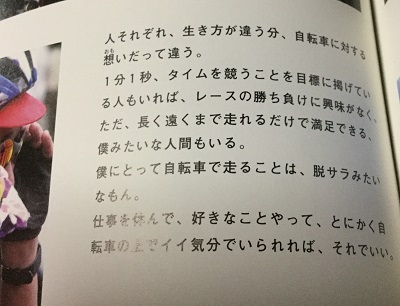 人それぞれ、生き方が違う分、自転車に対する
おも
想いだって違う。
1分1秒、タイムを競うことを目標に掲げてい
る人もいれば、レースの勝ち負けに興味がなく、
ただ、長く遠くまで走れるだけで満足できる、
僕みたいな人間もいる。
僕にとって自転車で走ることは、脱サラみたい
なもん。
仕事を休んで、好きなことやって、とにかく自
転車の上でイイ気分でいられれば、それでいい。